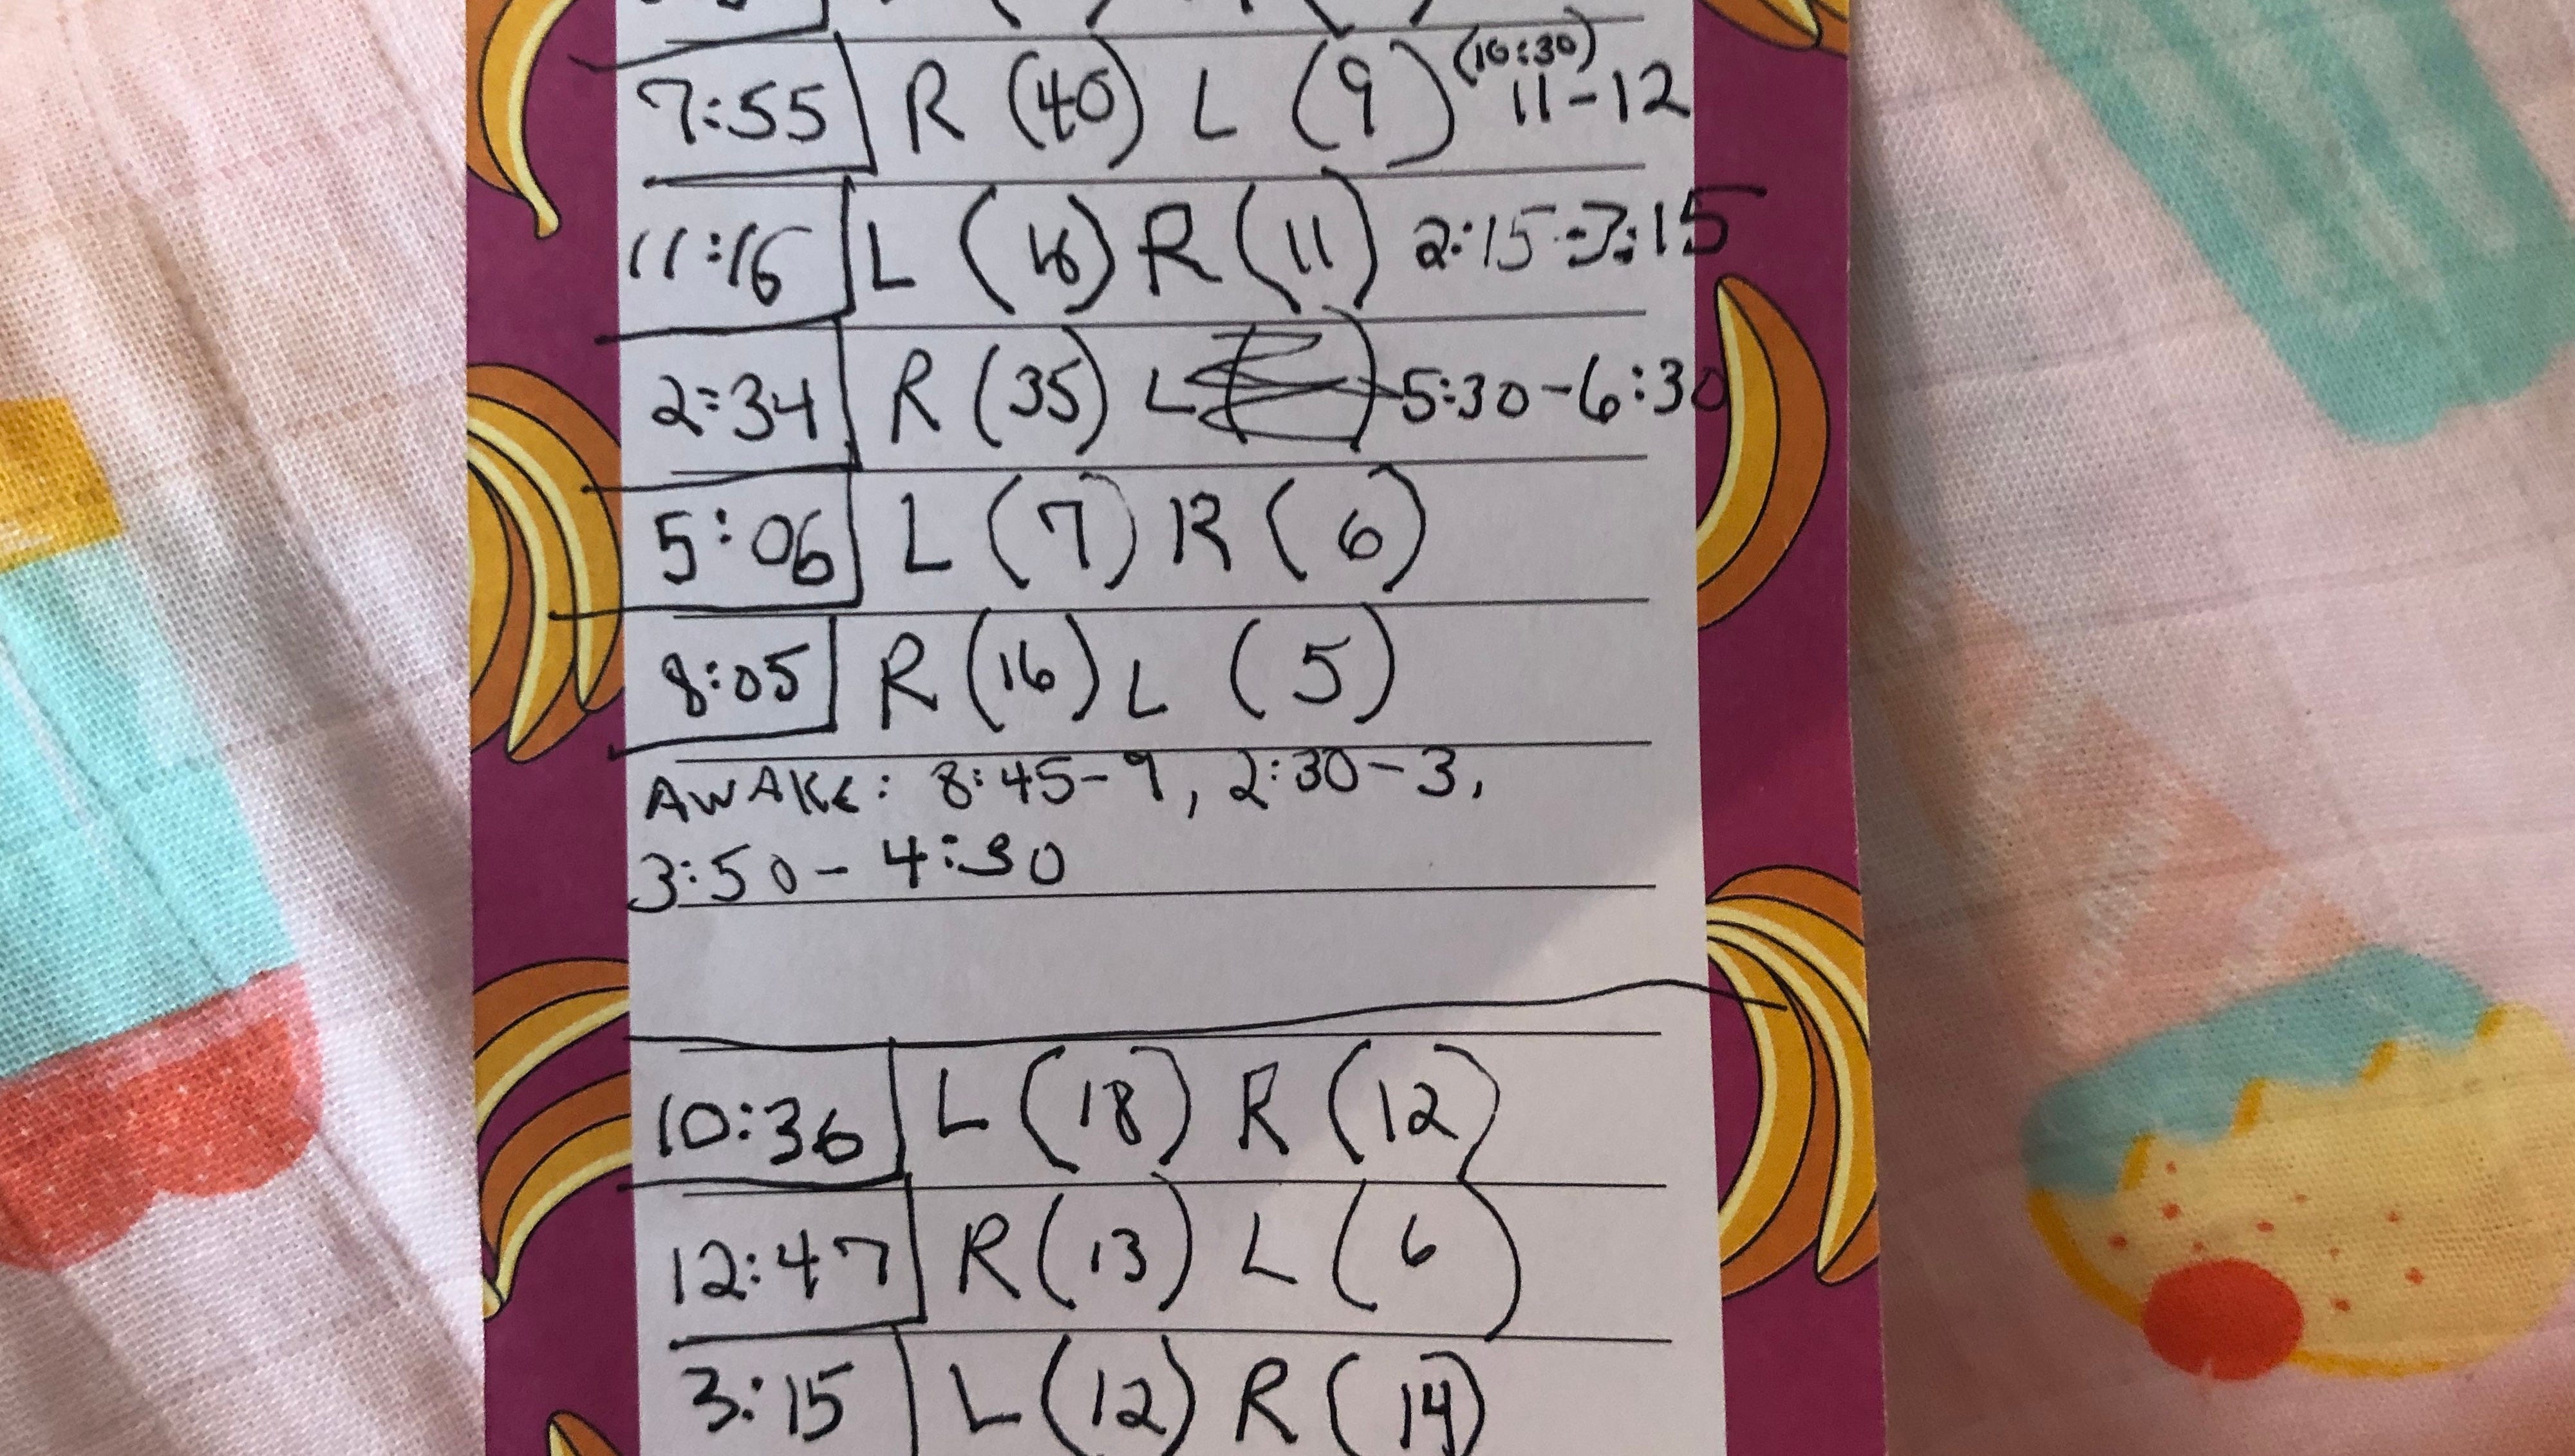 7:55 R (40) L (9) (10:30) 11-12
11:16 L (16) R (11) 2:15-3:15
2:34 R (35) L 5:30-6:30
5:06 L (7) R (6)
8:05 R (16) L (5)
AWAKE: 8:45-9, 2:30-3,
3:50-4:30
10:36 L (18) R (12)
12:47 R (13) L (6)
3:15 L (12) R (14)